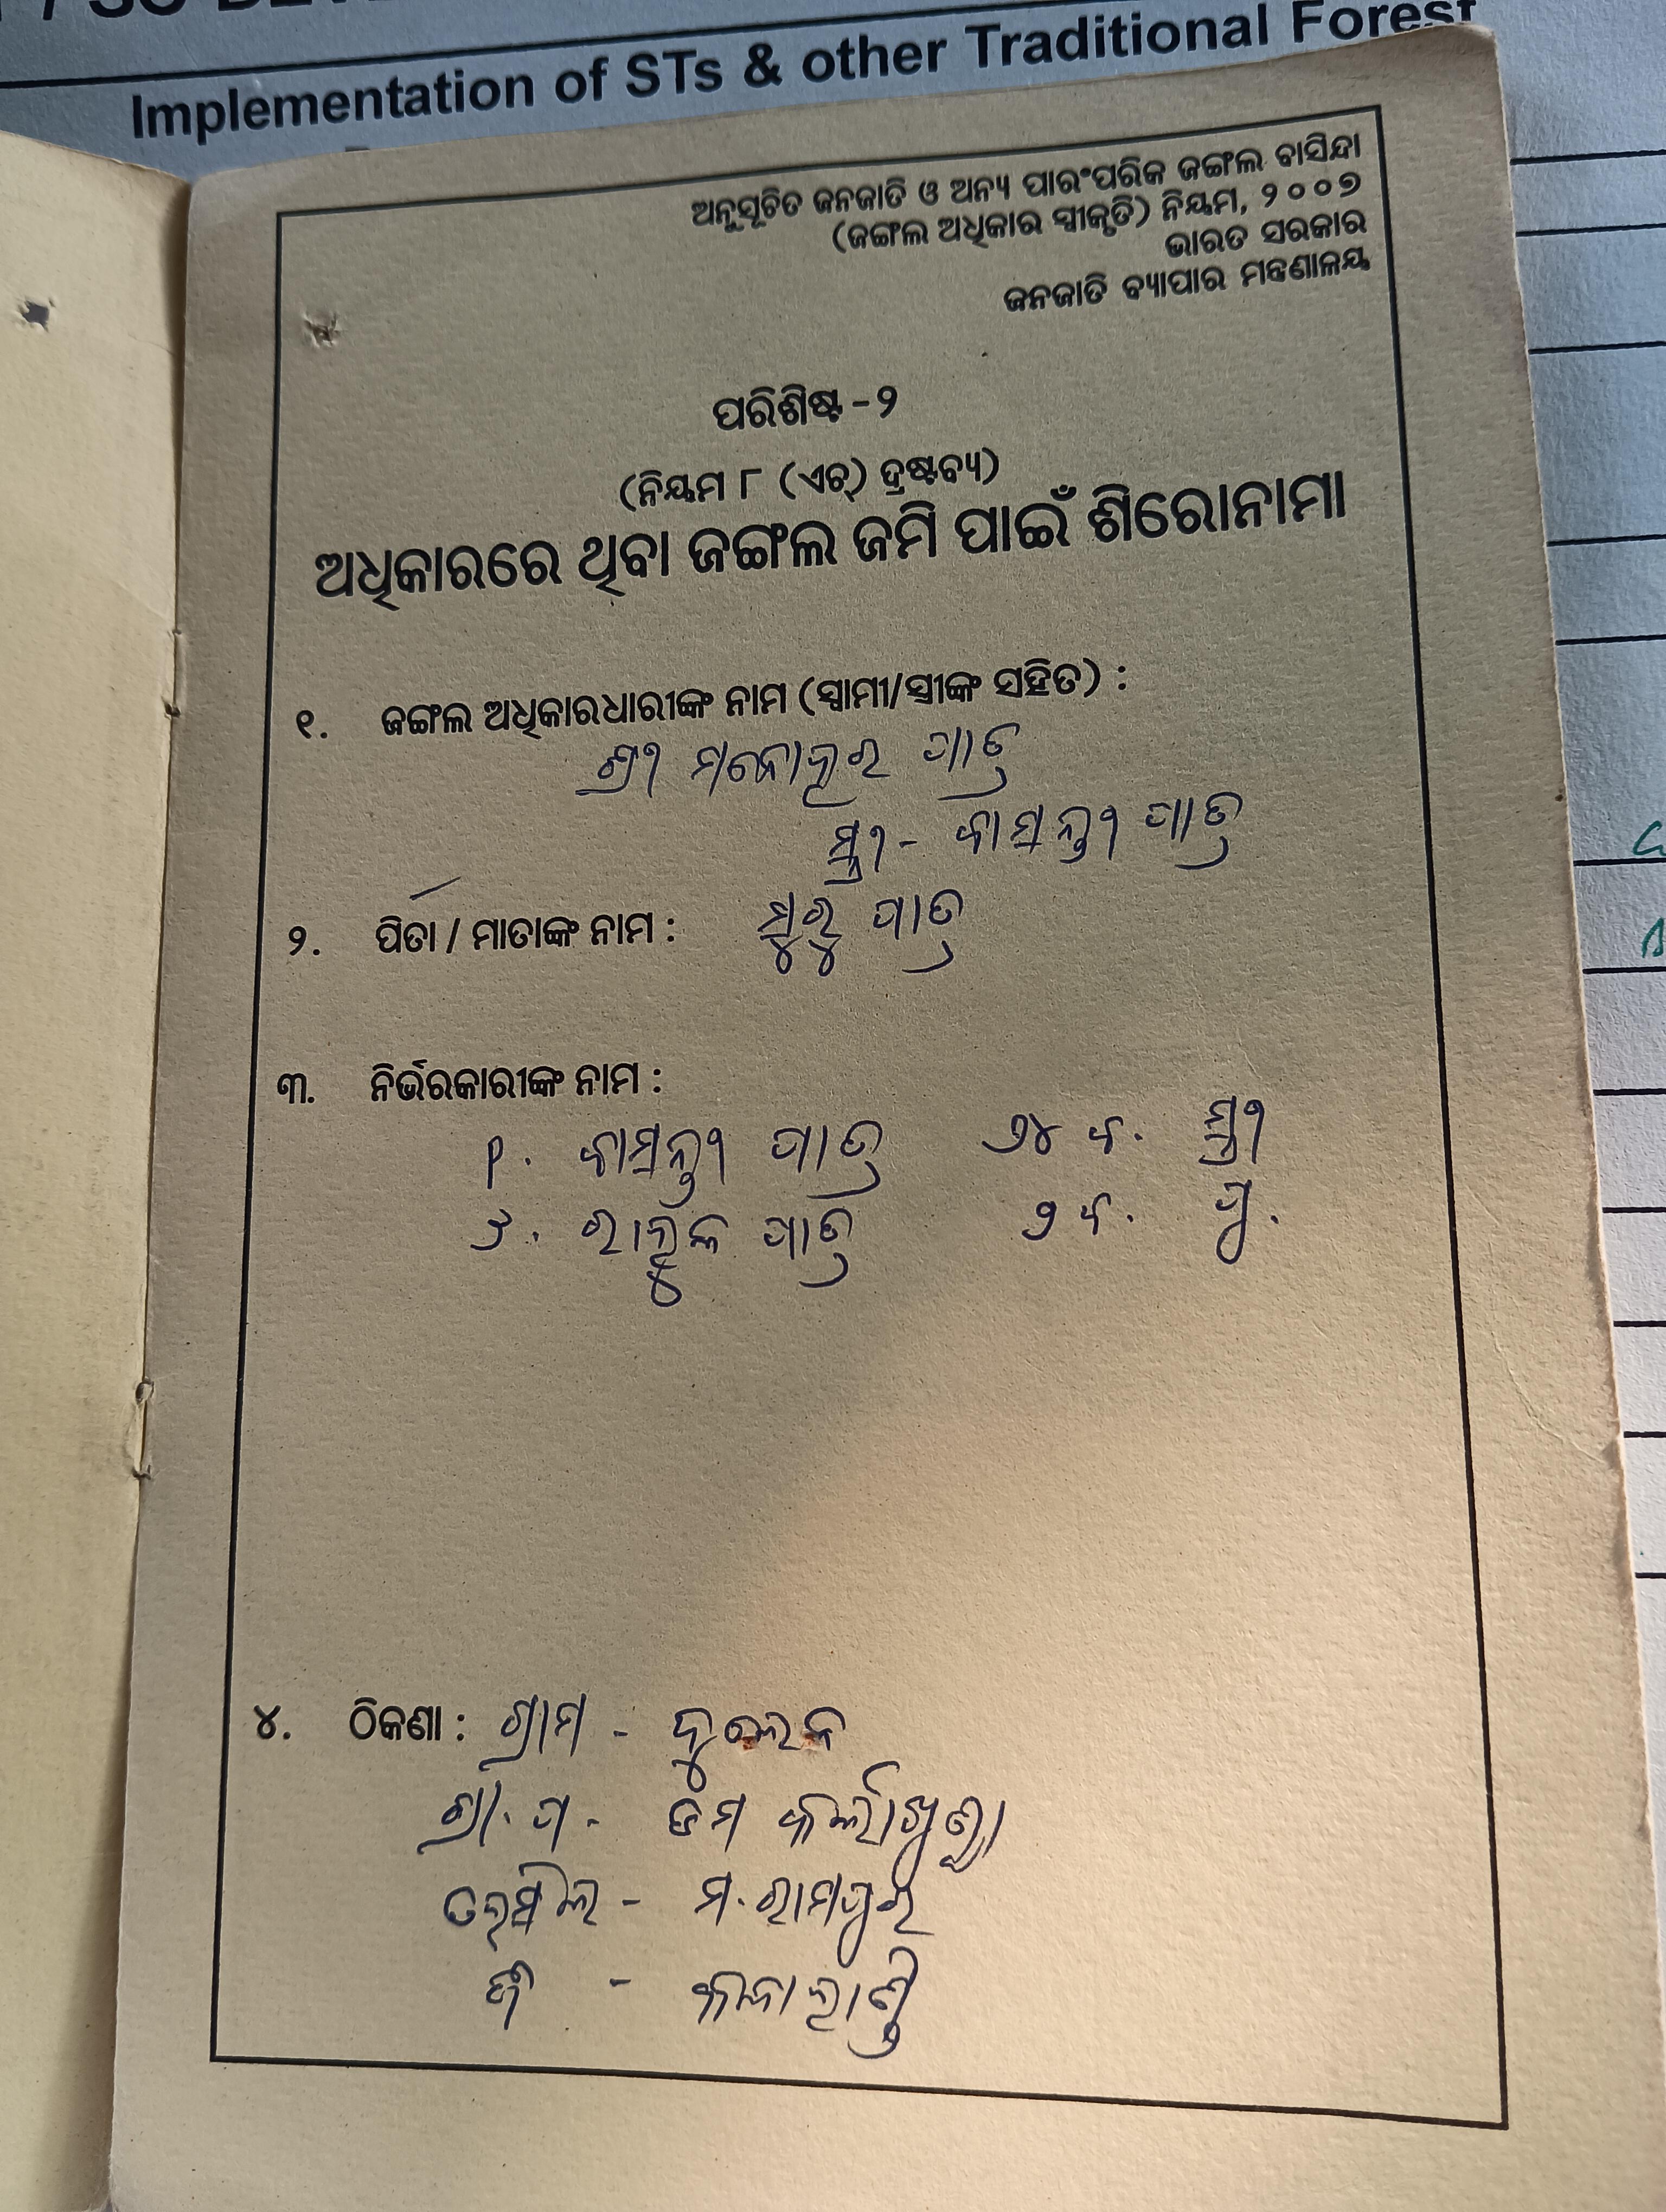 Implementation of STs & other Traditional Forest
ଅନୁସୂଚିତ ଜନଜାତି ଓ ଅନ୍ୟ ପାରଂପରିକ ଜଙ୍ଗଲ ବାସିନ୍ଦା
(ଜଙ୍ଗଲ ଅଧିକାର ସ୍ୱୀକୃତି) ନିୟମ, ୨୦୦୭
ଭାରତ ସରକାର
ଜନଜାତି ବ୍ୟାପାର ମନ୍ତ୍ରଣାଳୟ
ପରିଶିଷ୍ଟ - ୨
(ନିୟମ ୮ (ଏଚ୍) ଦ୍ରଷ୍ଟବ୍ୟ)
ଅଧିକାରରେ ଥିବା ଜଙ୍ଗଲ ଜମି ପାଇଁ ଶିରୋନାମା
୧. ଜଙ୍ଗଲ ଅଧିକାରଧାରୀଙ୍କ ନାମ (ସ୍ୱାମୀ/ସ୍ତ୍ରୀଙ୍କ ସହିତ) :
ଶ୍ରୀ ମନୋହର ପାତ୍ର
ସ୍ତ୍ରୀ - ବାସନ୍ତୀ ପାତ୍ର
୨. ପିତା / ମାତାଙ୍କ ନାମ : ପାତ୍ର
୩. ନିର୍ଭରକାରୀଙ୍କ ନାମ :
୧. ବାସନ୍ତୀ ପାତ୍ର ୬୪ ବ. ସ୍ତ୍ରୀ
୨. ରାହୁଳ ପାତ୍ର ୭ ବ. ପୁ.
୪. ଠିକଣା : ଗ୍ରାମ -
ଗ୍ରା. ପ. - ଡମ କର୍ଲାଖୁଣ୍ଟା
ତହସିଲ - ମ. ରାମପୁର
ଜି - କଳାହାଣ୍ଡି